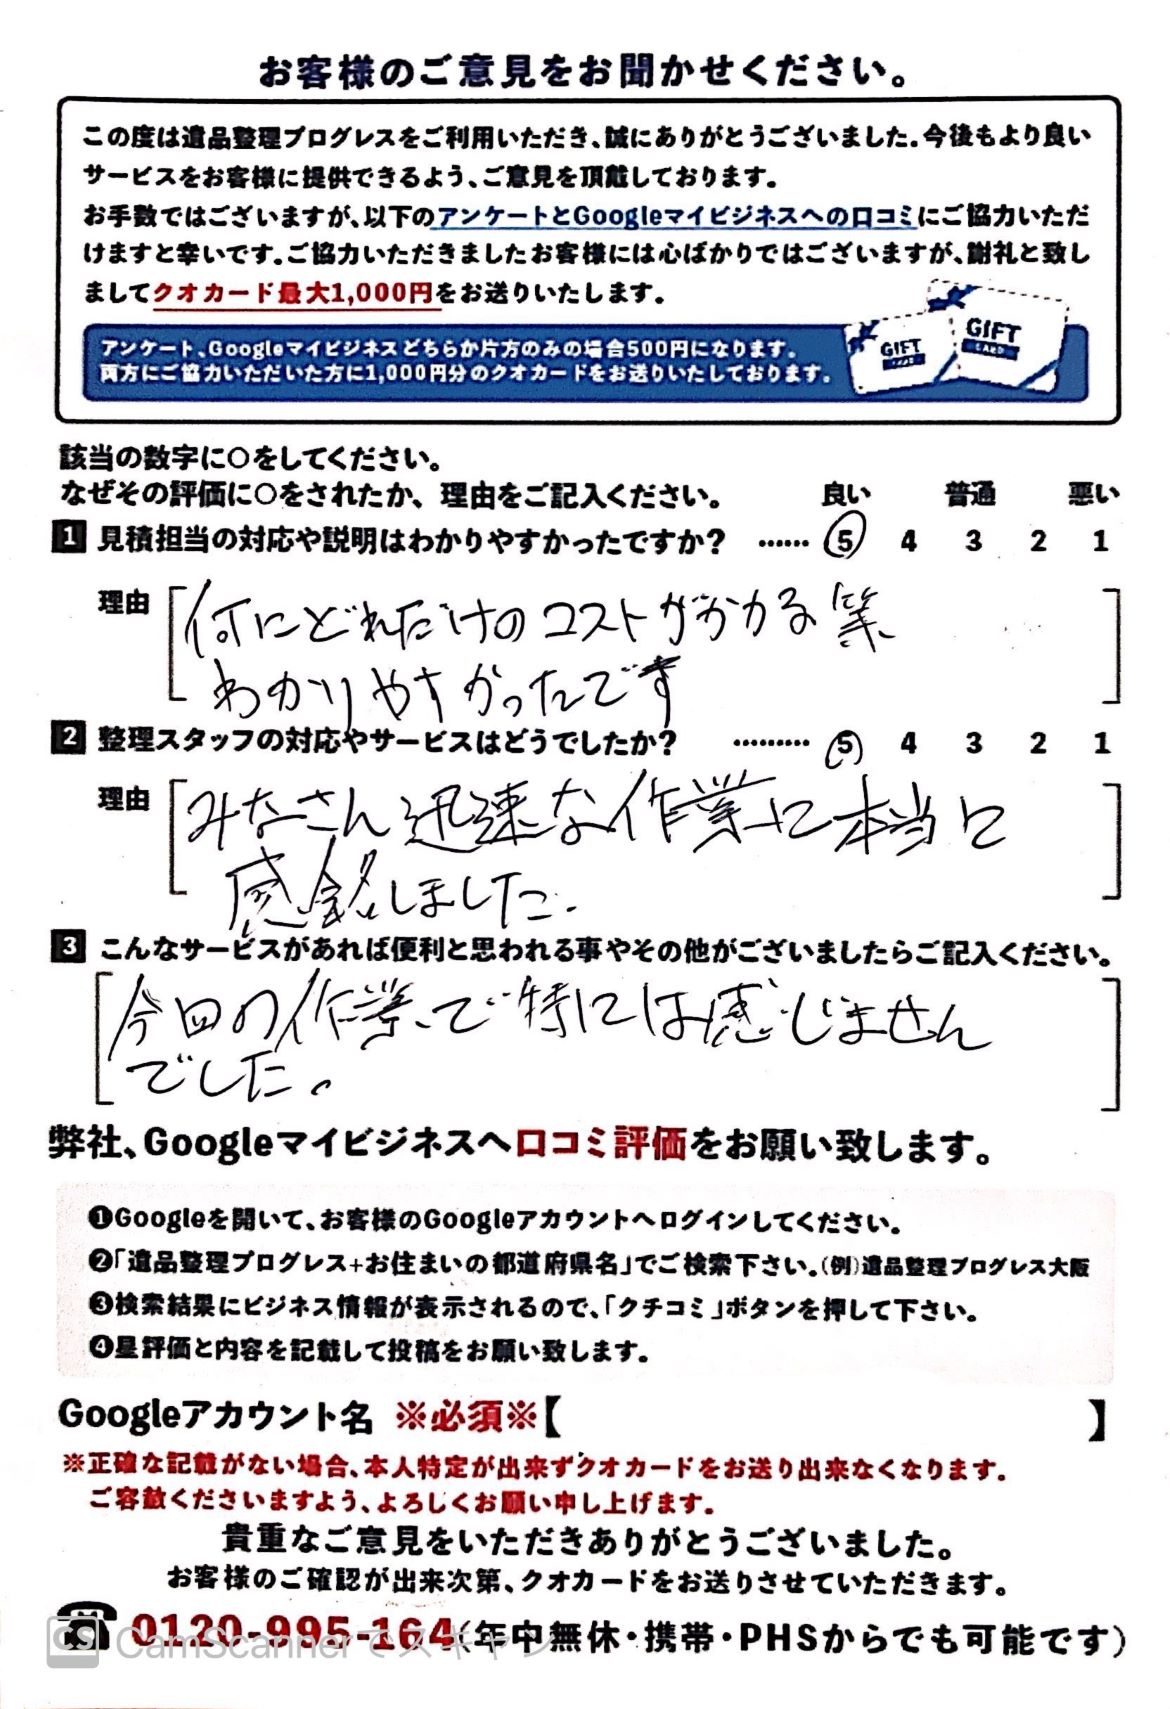 お客様のご意見をお聞かせください。
この度は遺品整理プログレスをご利用いただき、誠にありがとうございました。今後もより良い
サービスをお客様に提供できるよう、ご意見を頂戴しております。
お手数ではございますが、以下のアンケートとGoogleマイビジネスへの口コミにご協力いただ
けますと幸いです。ご協力いただきましたお客様には心ばかりではございますが、謝礼と致し
ましてクオカード最大1,000円をお送りいたします。
アンケート、Googleマイビジネスどちらか片方のみの場合500円になります。
両方にご協力いただいた方に1,000円分のクオカードをお送りいたしております。
GIFT CARD
GIFT CARD
該当の数字に○をしてください。
なぜその評価に○をされたか、理由をご記入ください。 良い 普通 悪い
1 見積担当の対応や説明はわかりやすかったですか? …… 5 4 3 2 1
理由 何にどれだけのコストがかかる等
わかりやすかったです
2 整理スタッフの対応やサービスはどうでしたか? ……… 5 4 3 2 1
理由 みなさん迅速な作業に本当に
感銘しました.
3 こんなサービスがあれば便利と思われる事やその他がございましたらご記入ください。
今回の作業で特には感じません
でした。
弊社、Googleマイビジネスへ口コミ評価をお願い致します。
❶Googleを開いて、お客様のGoogleアカウントへログインしてください。
❷「遺品整理プログレス+お住まいの都道府県名」でご検索下さい。(例)遺品整理プログレス大阪
❸検索結果にビジネス情報が表示されるので、「クチコミ」ボタンを押して下さい。
❹星評価と内容を記載して投稿をお願い致します。
Googleアカウント名 ※必須※【 】
※正確な記載がない場合、本人特定が出来ずクオカードをお送り出来なくなります。
ご容赦くださいますよう、よろしくお願い申し上げます。
貴重なご意見をいただきありがとうございました。
お客様のご確認が出来次第、クオカードをお送りさせていただきます。
☎0120-995-164(年中無休・携帯・PHSからでも可能です)
CS CamScannerでスキャン